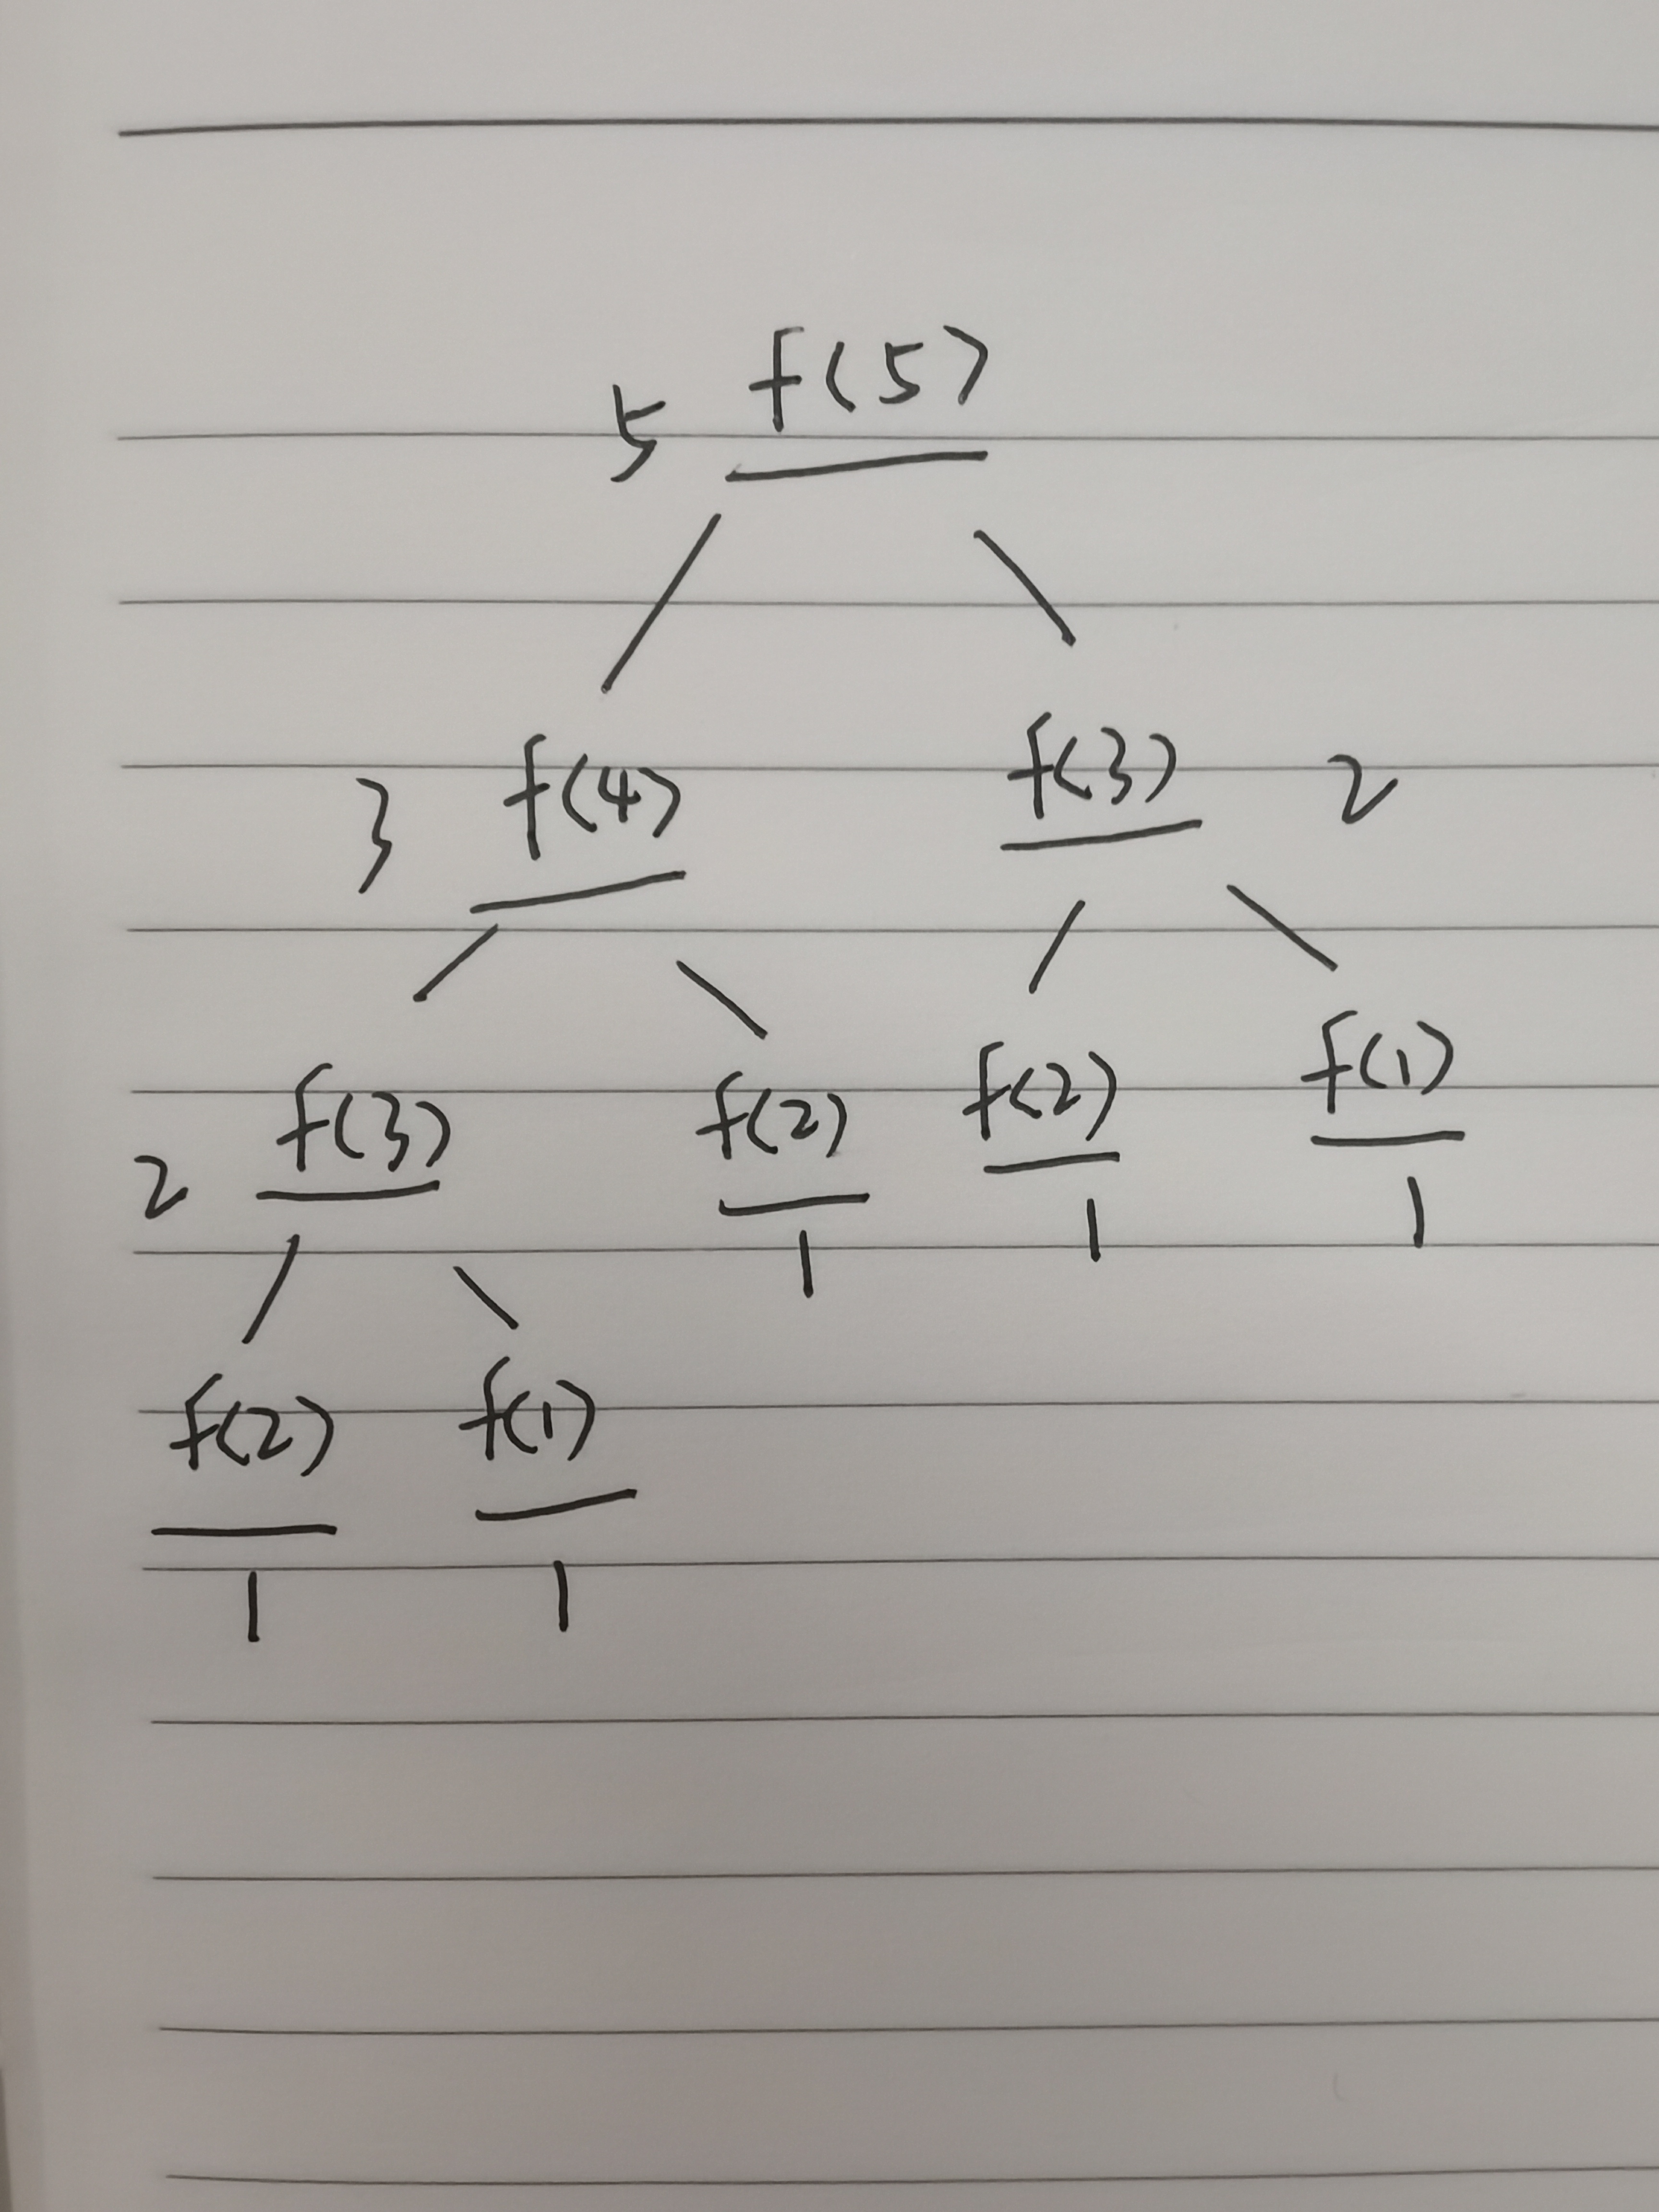 5 f(5)
3 f(4) f(3) 2
2 f(3) f(2) f(2) f(1)
1 1 1
f(2) f(1)
1 1